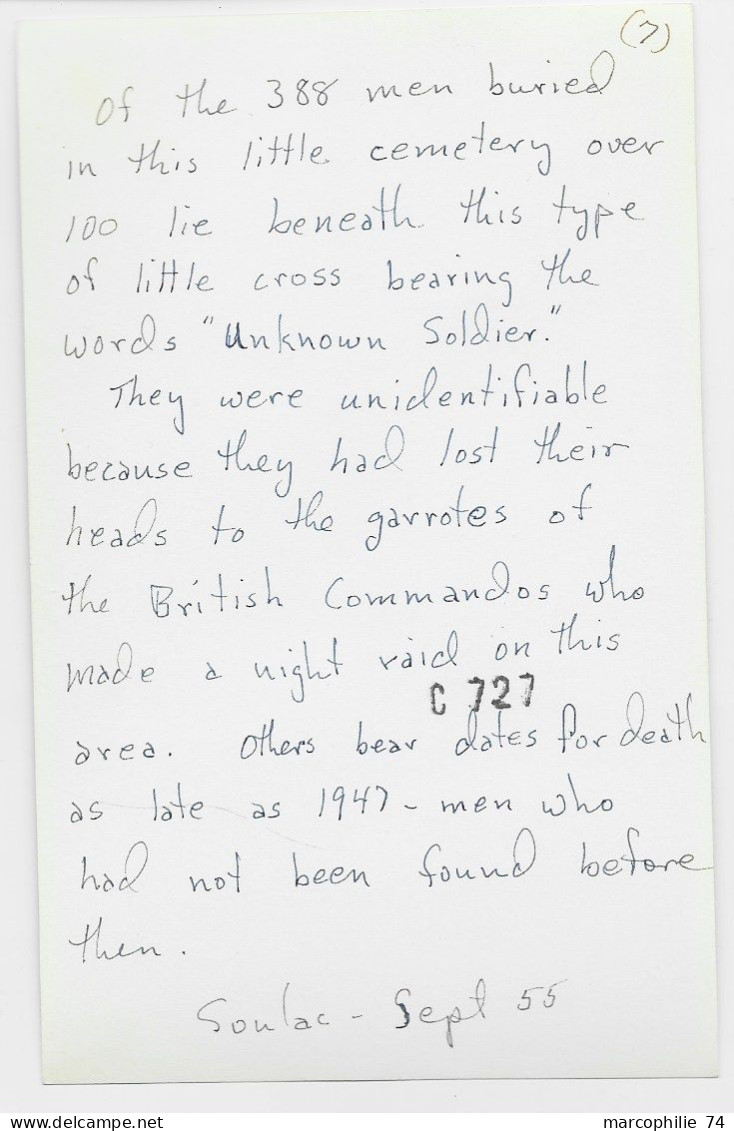 (7)
Of the 388 men buried
in this little cemetery over
100 lie beneath this type
of little cross bearing the
words "Unknown Soldier."
They were unidentifiable
because they had lost their
heads to the garrotes of
the British Commandos who
made a night raid on this
C 727
area. Others bear dates for death
as late as 1947 - men who
had not been found before
then.
Soulac - Sept 55
marcophilie 74